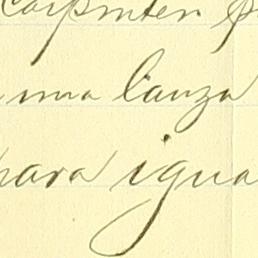 Carpinter
una lanza
para igua